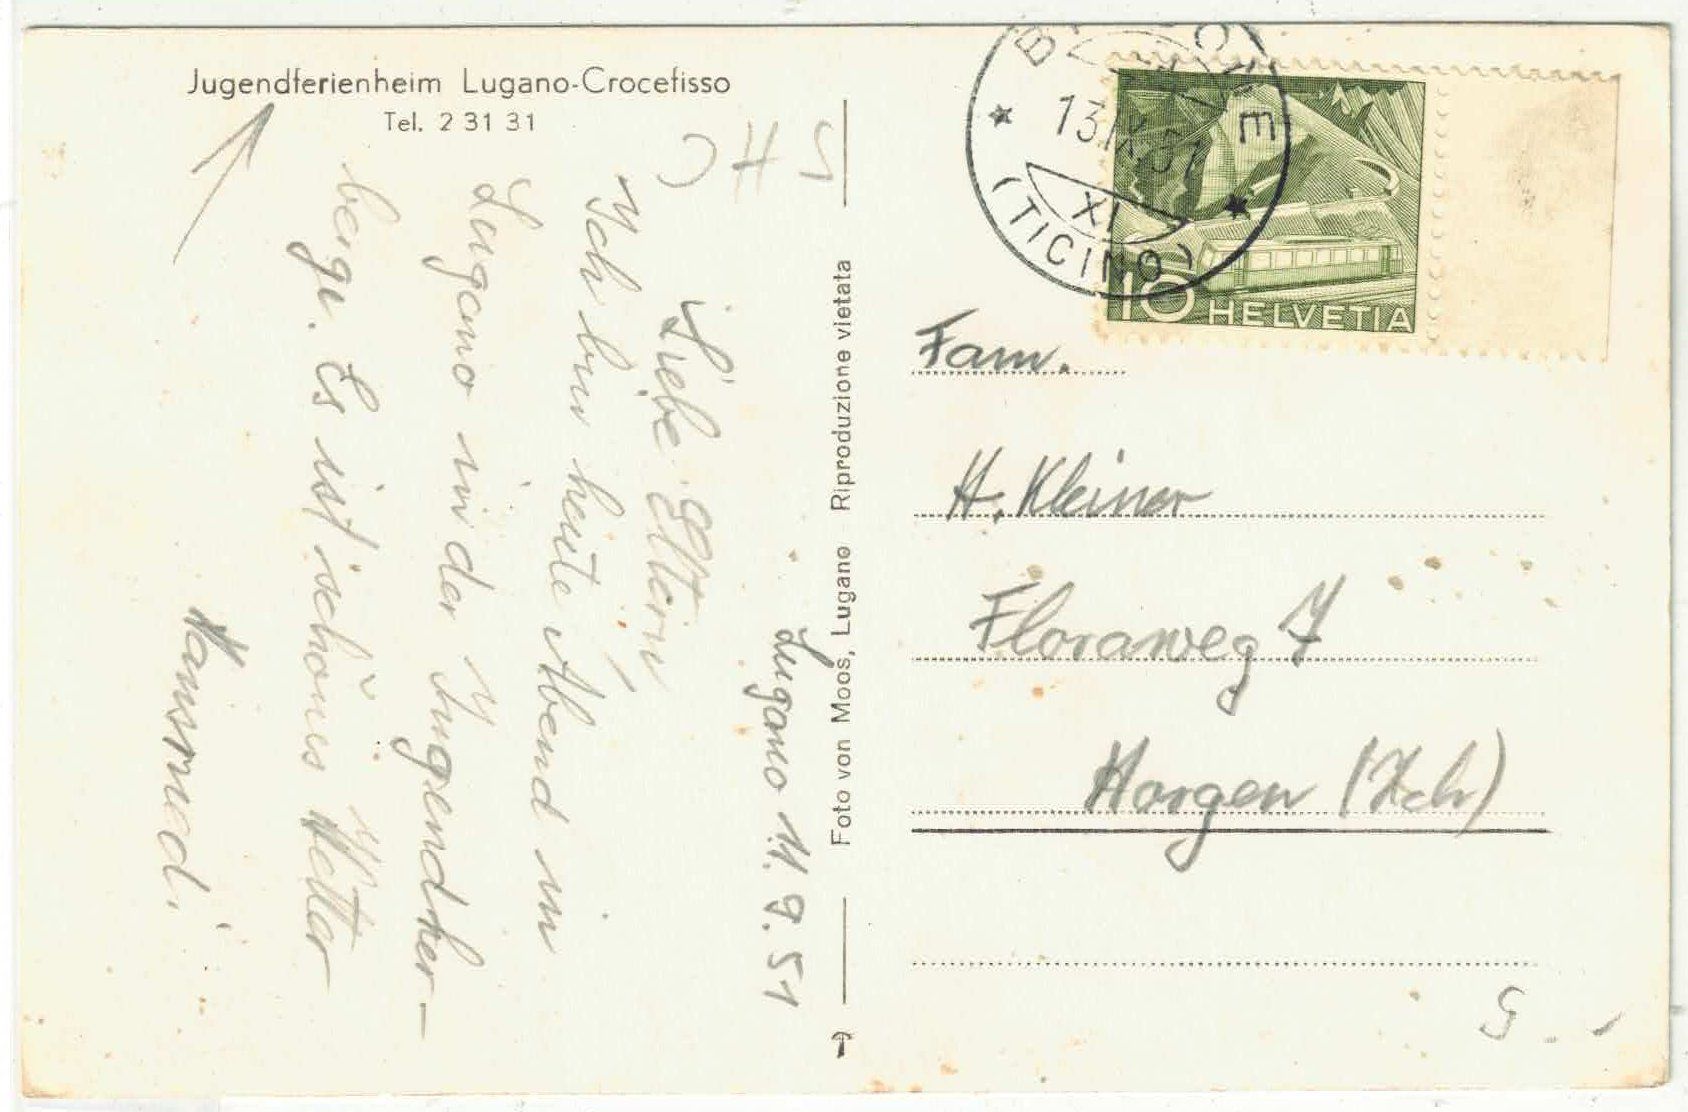 Jugendferienheim Lugano-Crocefisso
Tel. 2 31 31
Lugano 11. 9. 51
Liebe Eltern,
Ich bin heute Abend in
Lugano in der Jugendher-
berge. Es ist schönes Wetter
Hansruedi.
Foto von Moos, Lugano Riproduzione vietata
13.IX.51
XI
(TICINO)
10 HELVETIA
Fam.
H. Kleiner
Floraweg 7
Horgen (Zch)